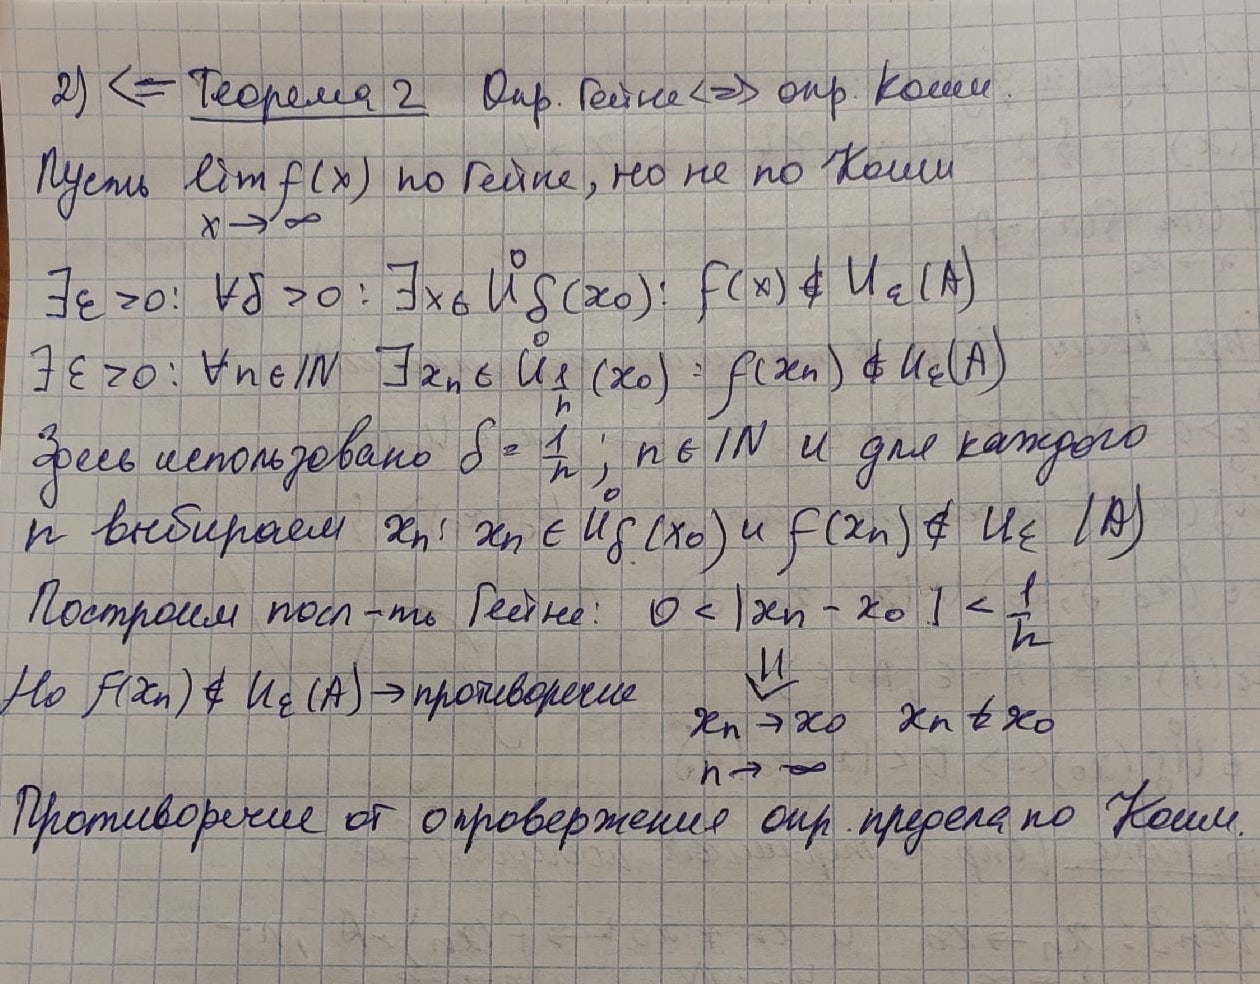 2) <= Теорема 2 Опр. Гейне <=> опр. Коши.
Пусть lim f(x) по Гейне, но не по Коши
x → ∞
∃ε >0: ∀δ >0 : ∃x ∈ Ůδ(x₀): f(x) ∉ Uε(A)
∃ε >0: ∀n ∈ ℕ ∃xₙ ∈ Ů1/n (x₀) : f(xₙ) ∉ Uε(A)
Здесь использовано δ = 1/n ; n ∈ ℕ и для каждого
n выбираем xₙ: xₙ ∈ Ůδ(x₀) и f(xₙ) ∉ Uε (A)
Построим посл-ть Гейне: 0 < |xₙ - x₀| < 1/n
⇓
Но f(xₙ) ∉ Uε(A) → противоречие xₙ → x₀ xₙ ≠ x₀
n → ∞
Противоречие от опровержения опр. предела по Коши.